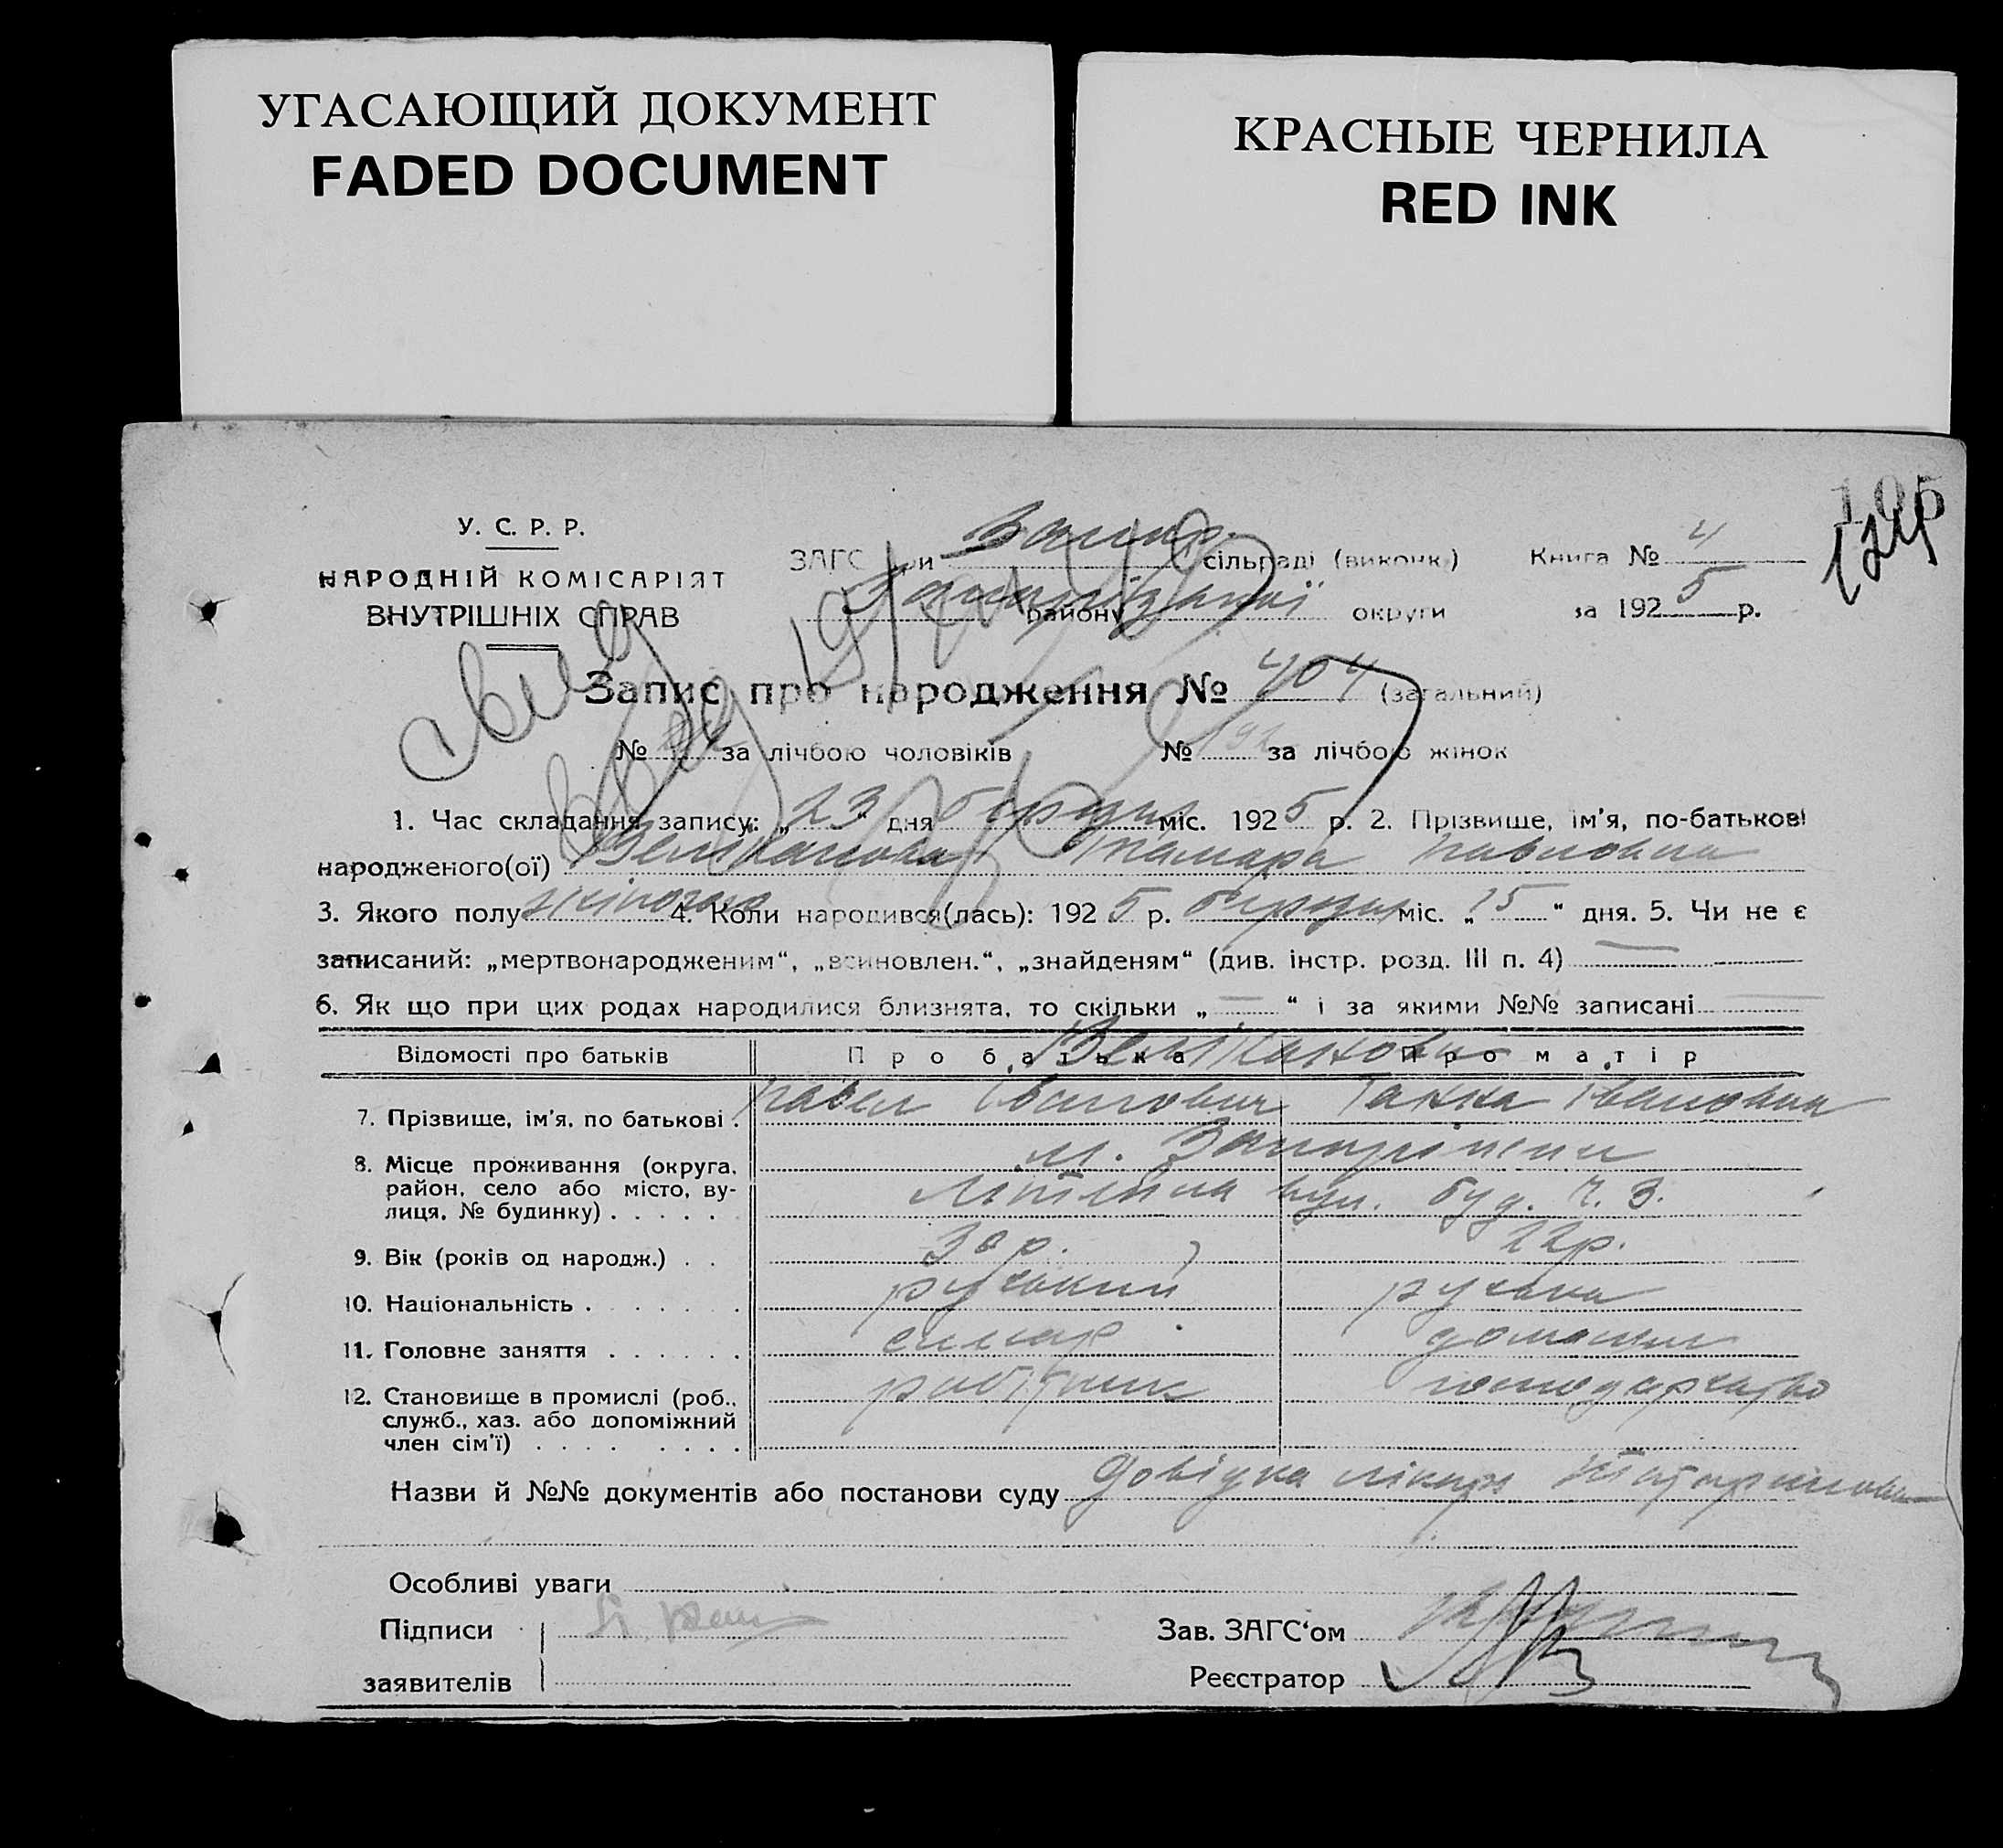 УГАСАЮЩИЙ ДОКУМЕНТ
FADED DOCUMENT
КРАСНЫЕ ЧЕРНИЛА
RED INK
105
124
У. С. Р. Р.
НАРОДНІЙ КОМІСАРІЯТ
ВНУТРІШНІХ СПРАВ
ЗАГС при Запор. сільраді (виконк.) Книга № 4
району Запорізької округи за 1925 р.
Запис про народження № 404 (загальний)
№ за лічбою чоловіків № 191 за лічбою жінок
1. Час складання запису: „23“ дня березня міс. 1925 р. 2. Прізвище, ім'я, по-батькові
народженого(ої) Веліканова Тамара Павловна
3. Якого полу жіночого 4. Коли народився(лась): 1925 р. березня міс. „15“ дня. 5. Чи не є
записаний: „мертвонародженим“, „всиновлен.“, „знайденям“ (див. інстр. розд. III п. 4)
6. Як що при цих родах народилися близнята, то скільки „ “ і за якими №№ записані
Відомості про батьків Про батька Про матір
Веліканови
7. Прізвище, ім'я, по батькові . Павел Іванович Ганна Івановна
8. Місце проживання (округа, м. Запоріжжя
район, село або місто, ву- Літейна вул. буд. ч. 3.
лиця, № будинку) . . . . .
9. Вік (років од народж.) . . 30 р. 22 р.
10. Національність . . . . . . . руський руська
11. Головне заняття . . . . . . слюсар домашнє
12. Становище в промислі (роб., робітник господарство
служб., хаз. або допоміжний
член сім'ї) . . . . . . . .
Назви й №№ документів або постанови суду Довідка лікаря
Особливі уваги
Підписи Зав. ЗАГС'ом
заявителів Реєстратор